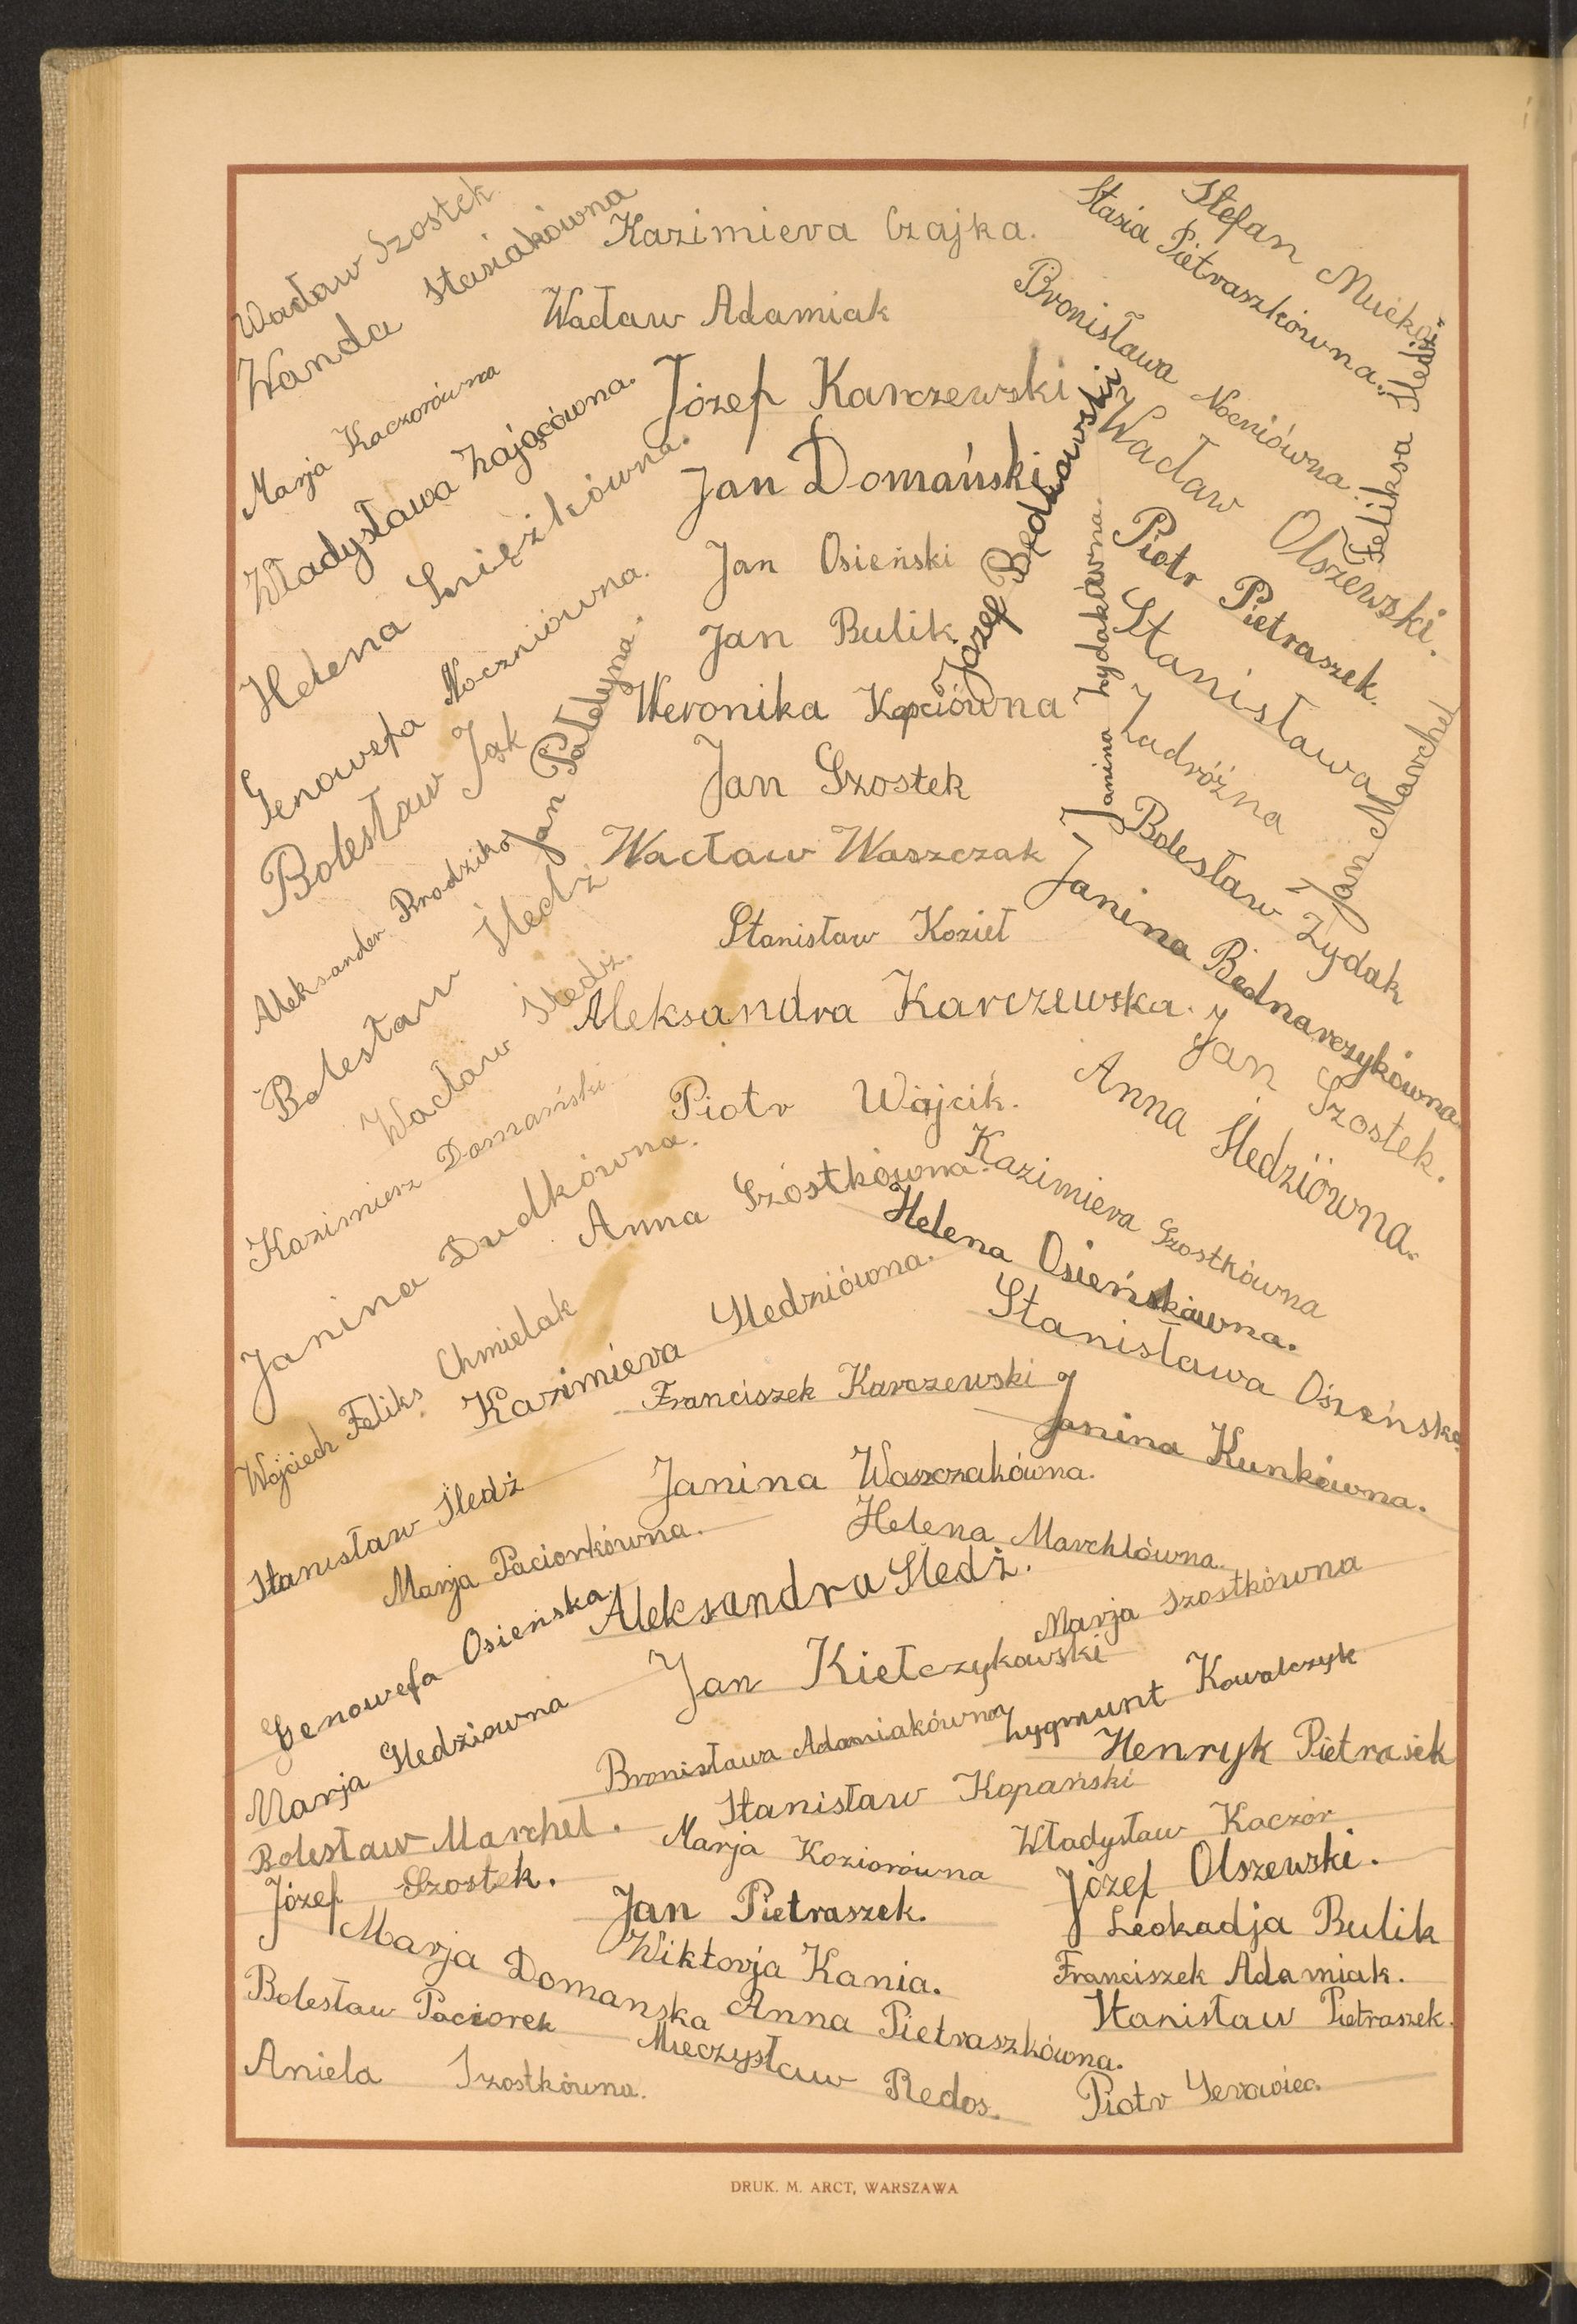 Wacław Szostek
Wanda Stasiakówna
Kazimiera Czajka.
Stasia Pietraszkówna.
Stefan Mućka
Wacław Adamiak
Bronisława Nocniówna.
Feliksa Śledź
Marja Kaczorówna
Władysława Zającówna.
Józef Karczewski
Wacław Olszewski.
Helena Śnieżkówna.
Jan Domański
Józef Będkowski
Piotr Pietraszek.
Genowefa Noczniówna.
Jan Osieński
Janina Żydakówna.
Stanisława Zadróżna
Bolesław Jak
Jan Bulik
Jan Pałdyna.
Weronika Kapciówna
Jan Marchel
Jan Szostek
Bolesław Żydak
Aleksander Brodzik
Wacław Waszczak
Janina Bednarczykówna.
Bolesław Śledź
Stanisław Kozieł
Wacław Śledź.
Aleksandra Karczewska.
Jan Szostek.
Kazimierz Domański
Piotr Wójcik.
Anna Śledziówna.
Janina Dudkówna.
Anna Szóstkówna.
Kazimiera Szostkówna
Helena Osieńskówna.
Wojciech Feliks Chmielak
Kazimiera Śledziówna.
Stanisława Osieńska
Franciszek Karczewski
Janina Kunkówna.
Stanisław Śledź
Janina Waszczakówna.
Marja Paciorkówna.
Helena Marchlówna.
Genowefa Osieńska
Aleksandra Śledź.
Marja Szostkówna
Jan Kiełczykowski
Marja Śledziowna
Bronisława Adamiakówna
Zygmunt Kowalczyk
Henryk Pietrasik
Bolesław Marchel.
Stanisław Kopański
Marja Koziorówna
Władysław Kaczor
Józef Szostek.
Józef Olszewski.
Jan Pietraszek.
Leokadja Bulik
Marja Domanska
Wiktorja Kania.
Franciszek Adamiak.
Bolesław Paciorek
Anna Pietraszkówna.
Stanisław Pietraszek.
Mieczysław Redos.
Aniela Szostkówna.
Piotr Serawiec.
DRUK. M. ARCT, WARSZAWA